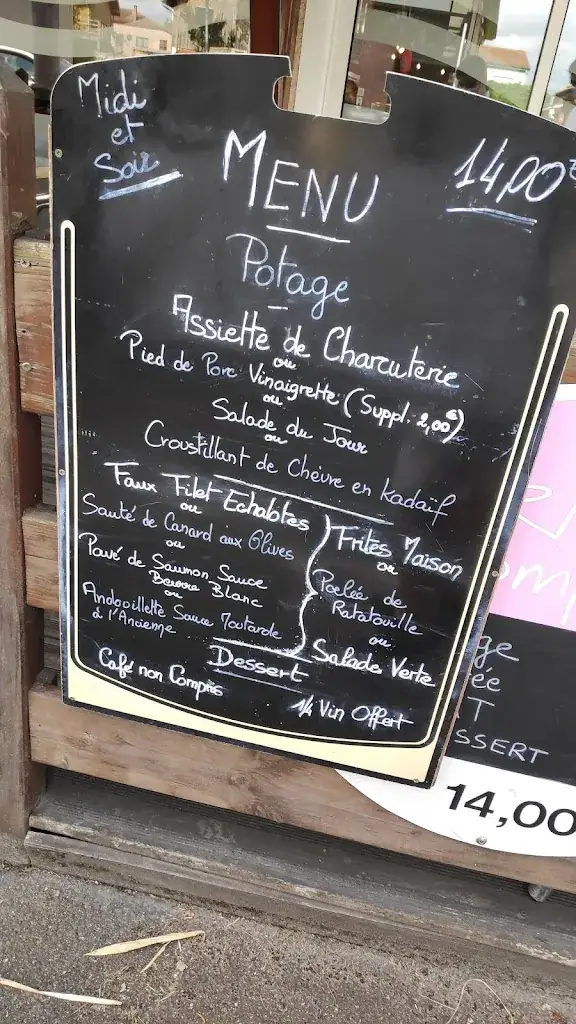 Midi
et
Soir
MENU
14,00€
Potage
Assiette de Charcuterie
ou
Pied de Porc Vinaigrette (Suppl. 2,00€)
ou
Salade du Jour
ou
Croustillant de Chèvre en Kadaïf
Faux Filet Echalotes
ou
Sauté de Canard aux Olives
ou
Pavé de Saumon Sauce
Beurre Blanc
ou
Andouillette Sauce Moutarde
à l'Ancienne
Frites Maison
ou
Poêlée de
Ratatouille
ou
Salade Verte
Dessert
Café non Compris
1/4 Vin Offert
SSERT
14,00